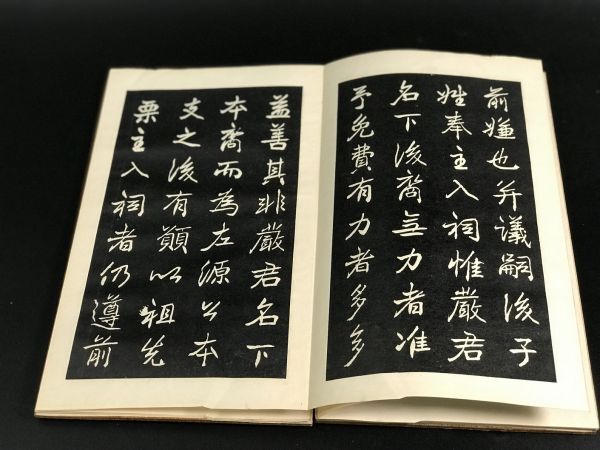 前嫌也并議嗣後子
姓奉主入祠惟嚴君
名下後裔無力者准
予免費有力者多多
益善其非嚴君名下
本裔而為左源公本
支之後有願以祖先
栗主入祠者仍遵前